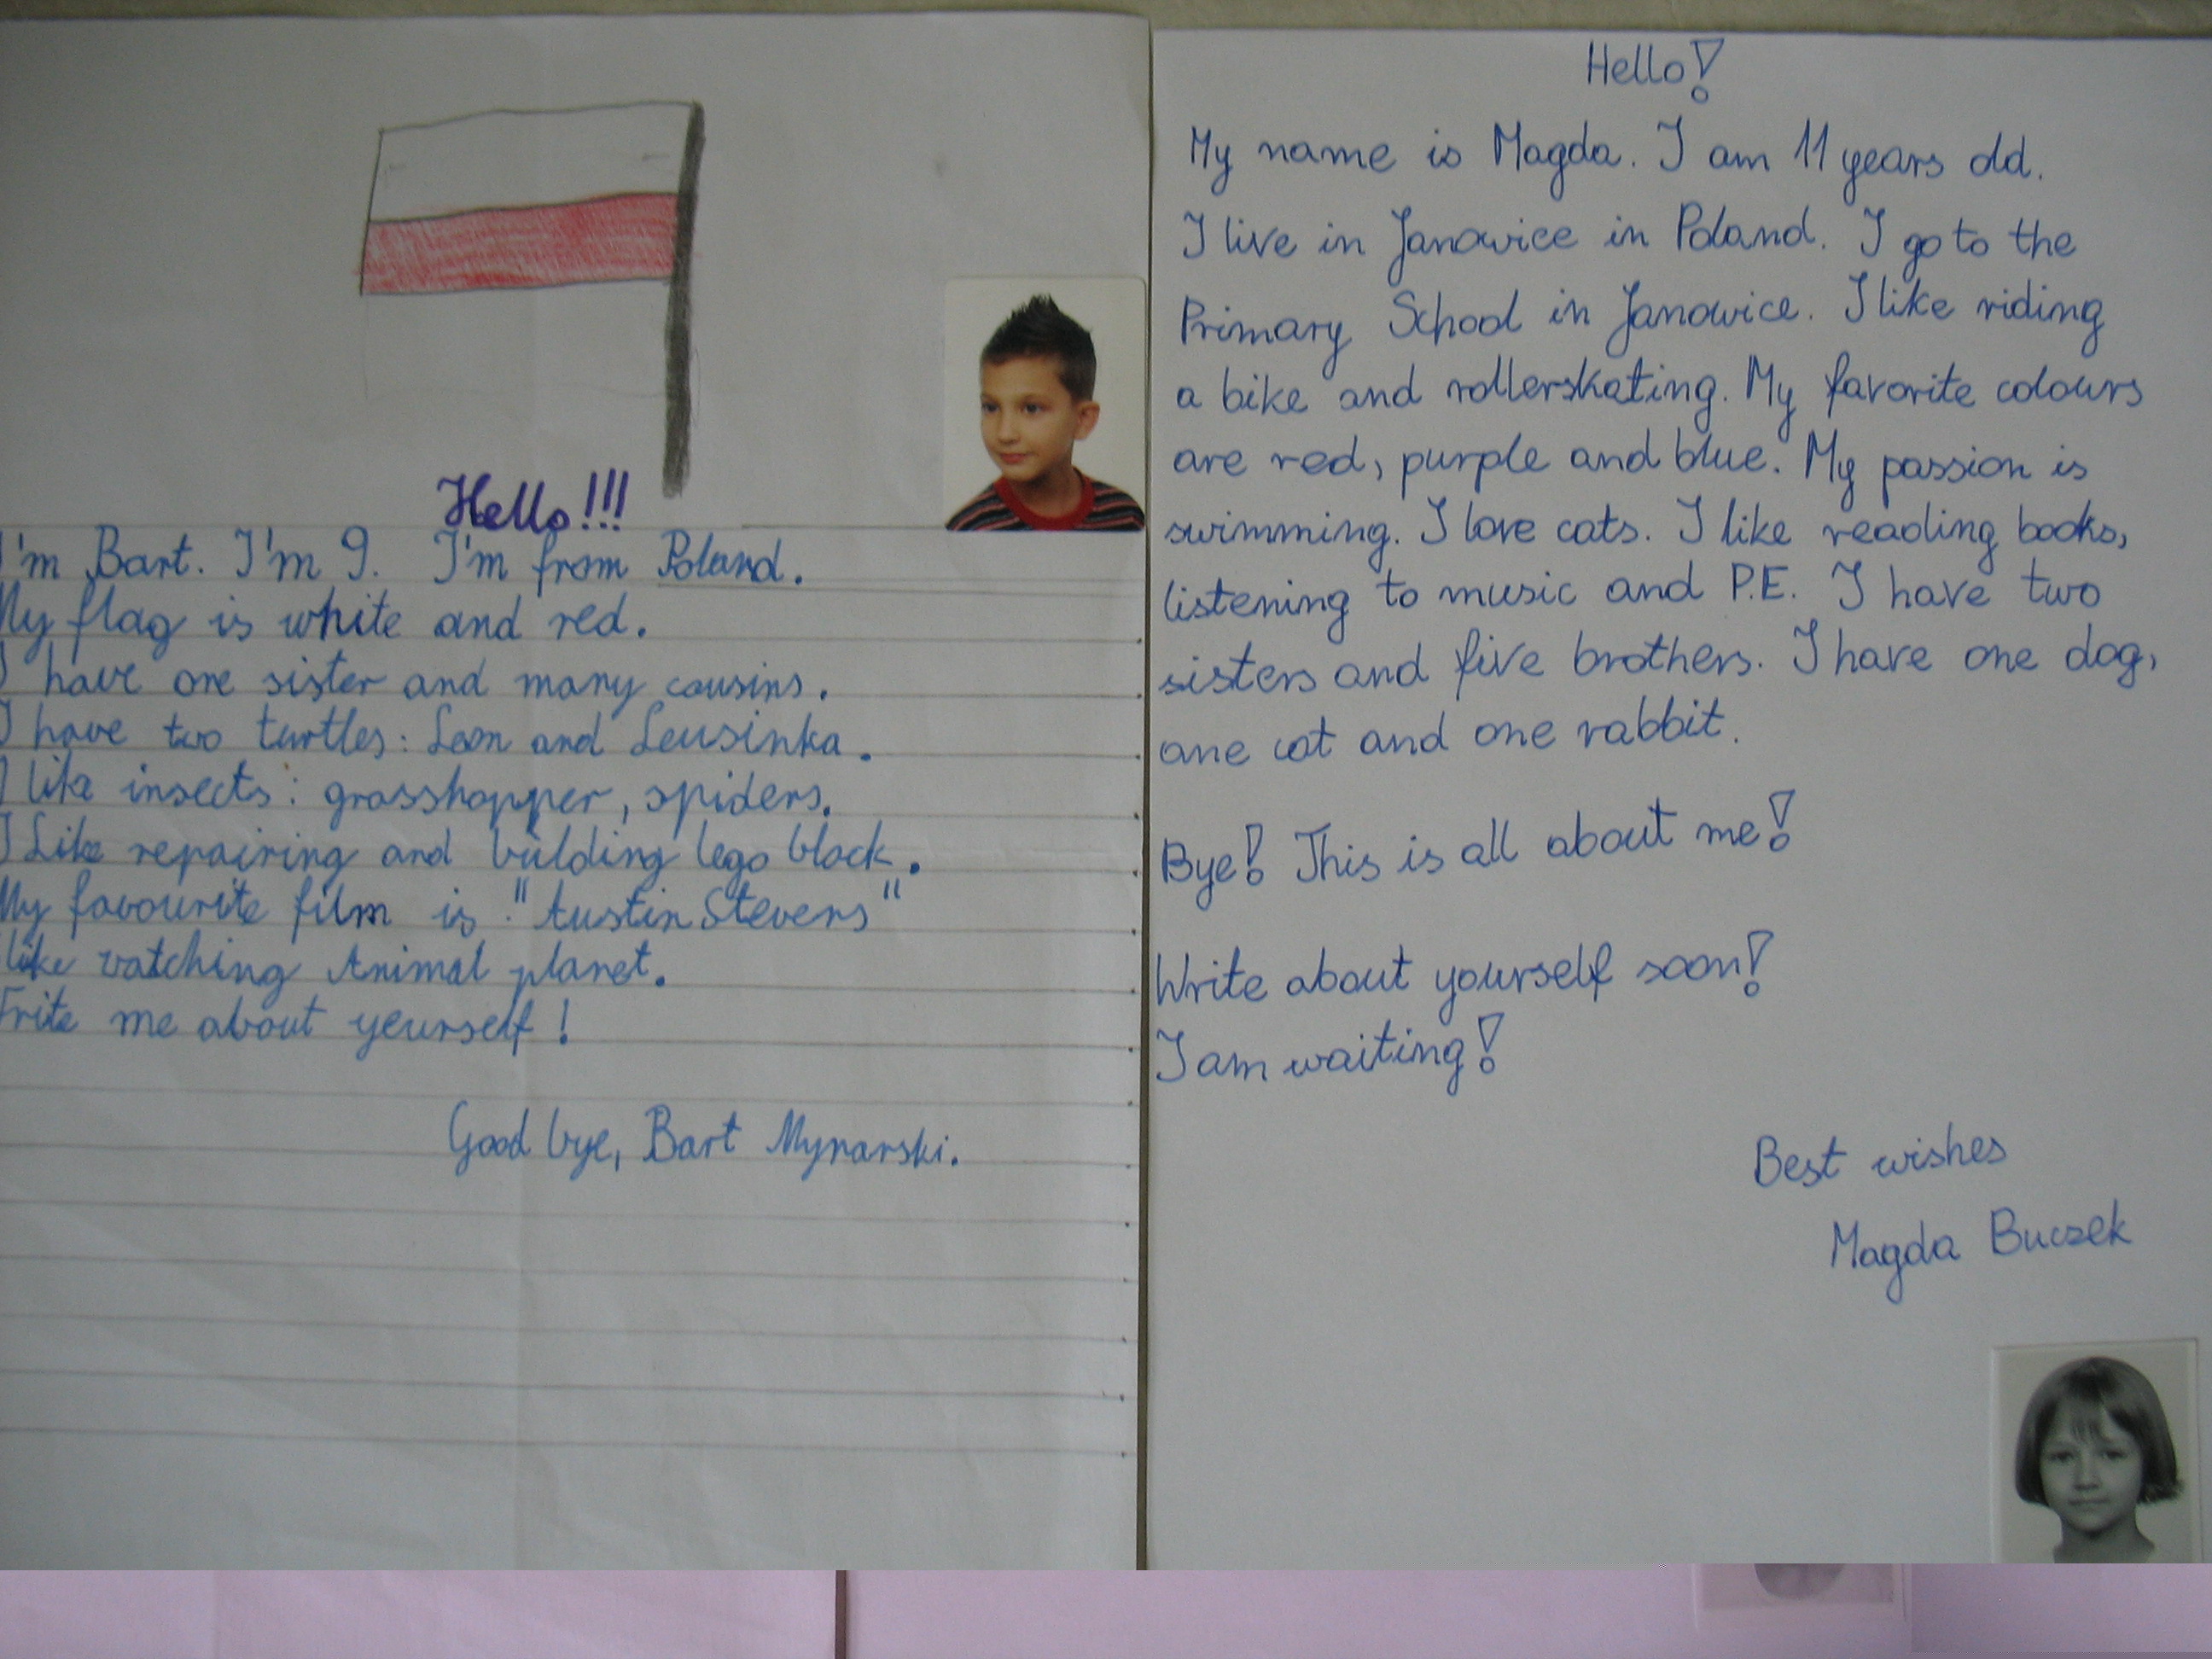 Hello!!!
I'm Bart. I'm 9. I'm from Poland.
My flag is white and red.
I have one sister and many cousins.
I have two turtles: Leon and Leusinka.
I like insects: grasshopper, spiders.
I Like repairing and building lego block.
My favourite film is "Austin Stevens"
I like watching Animal planet.
Write me about yourself!
Good bye, Bart Mynarski.
Hello!
My name is Magda. I am 11 years old.
I live in Janowice in Poland. I go to the
Primary School in Janowice. I like riding
a bike and rollerskating. My favorite colours
are red, purple and blue. My passion is
swimming. I love cats. I like reading books,
listening to music and P.E. I have two
sisters and five brothers. I have one dog,
one cat and one rabbit.
Bye! This is all about me!
Write about yourself soon!
I am waiting!
Best wishes
Magda Buczek